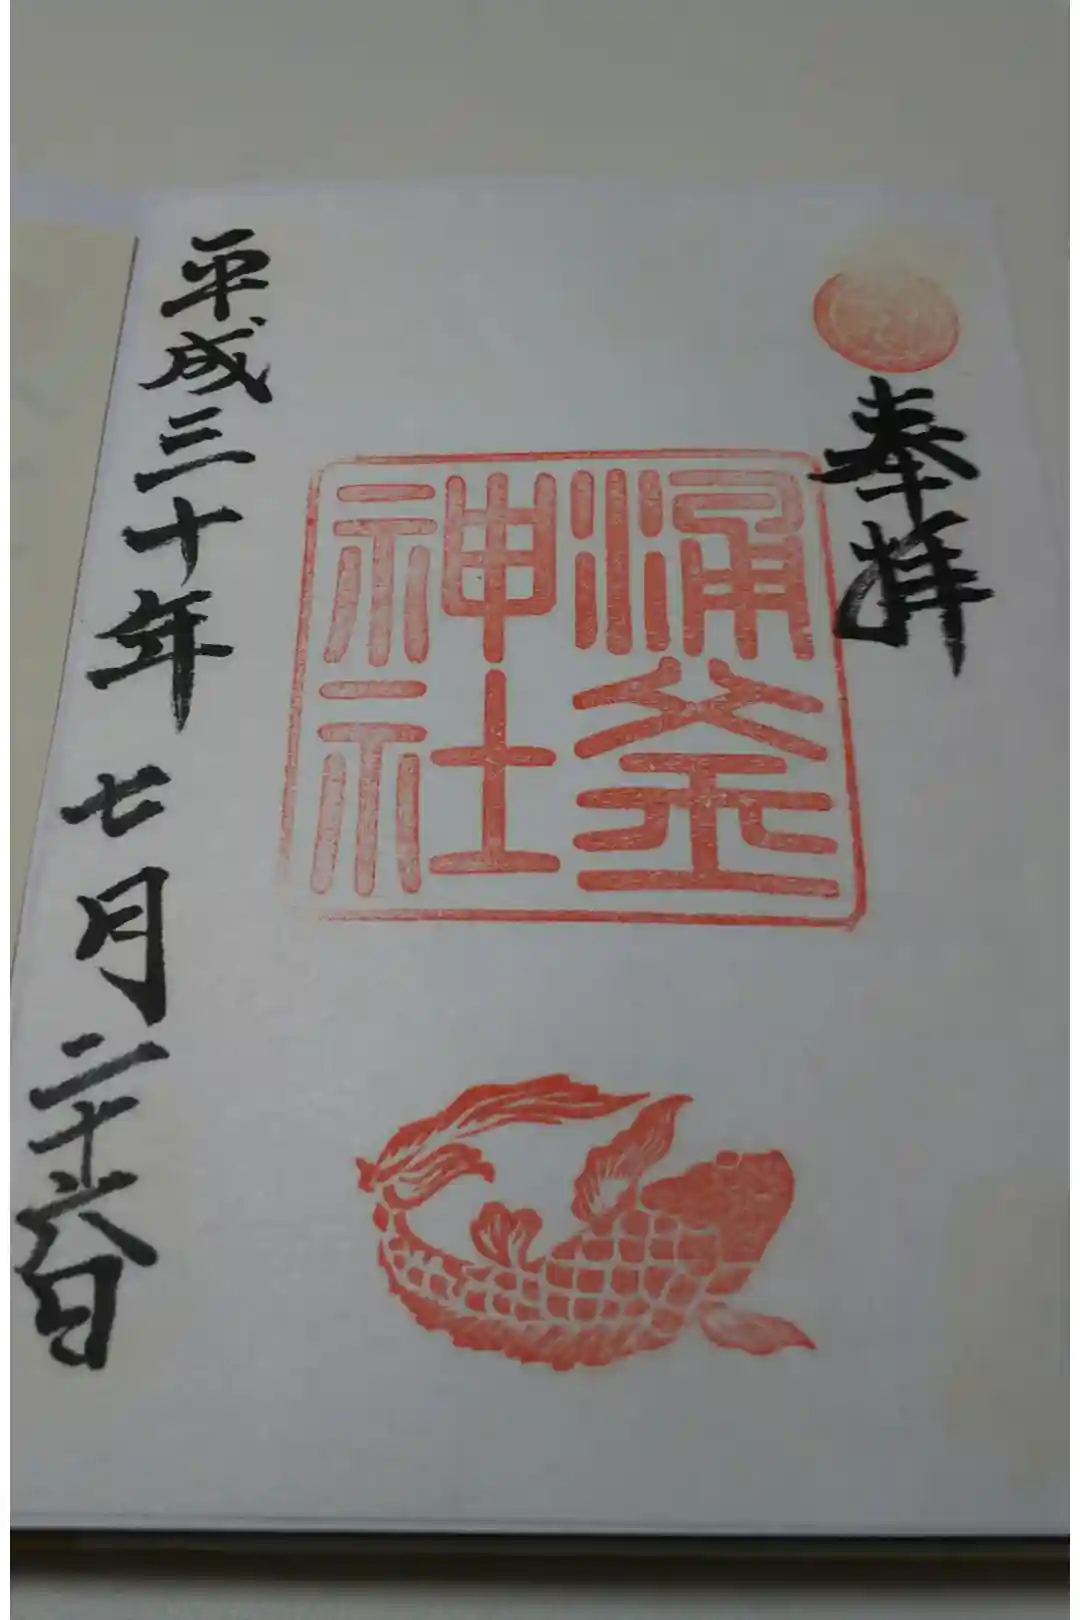 奉拝
涌釜
神社
平成三十年七月二十六日